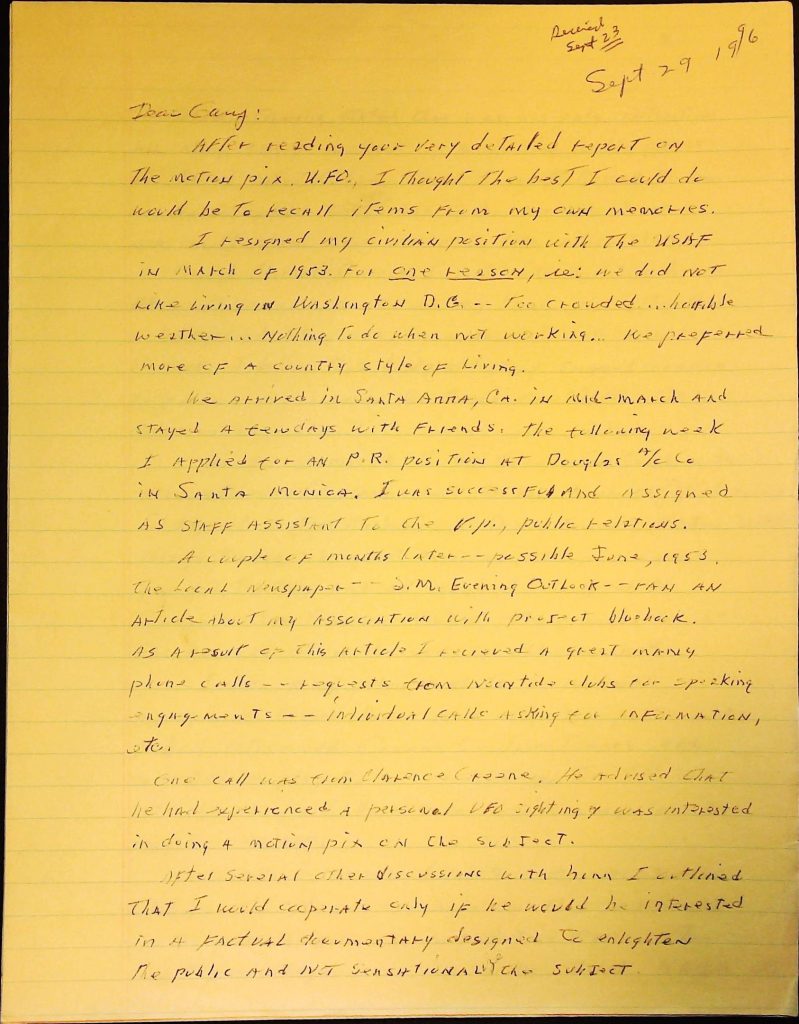 Received
Sept 23
Sept 29 1996
Dear Gang:
After reading your very detailed report on
the motion pix, U.F.O., I thought the best I could do
would be to recall items from my own memories.
I resigned my civilian position with the USAF
in March of 1953. For one reason, ie: we did not
like living in Washington D.C. -- too crowded ... horrible
weather... Nothing to do when not working... We preferred
more of a country style of living.
We arrived in Santa Anna, Ca. in mid-March and
stayed a few days with friends. The following week
I applied for an P.R. position at Douglas A/c Co
in Santa Monica. I was successful and assigned
as staff assistant to the V.P., public relations.
A couple of months later -- possible June, 1953.
the local newspaper -- S.M. Evening Outlook -- ran an
article about my association with project bluebook.
As a result of this article I recieved a great many
phone calls -- requests from noontide clubs for speaking
engagements -- individual calls asking for information,
etc.
One call was from Clarence Greene. He advised that
he had experienced a personal UFO sighting & was interested
in doing a motion pix on the subject.
After several other discussions with him I outlined
that I would cooperate only if he would be interested
in a factual documentary designed to enlighten
the public and not sensational the subject.